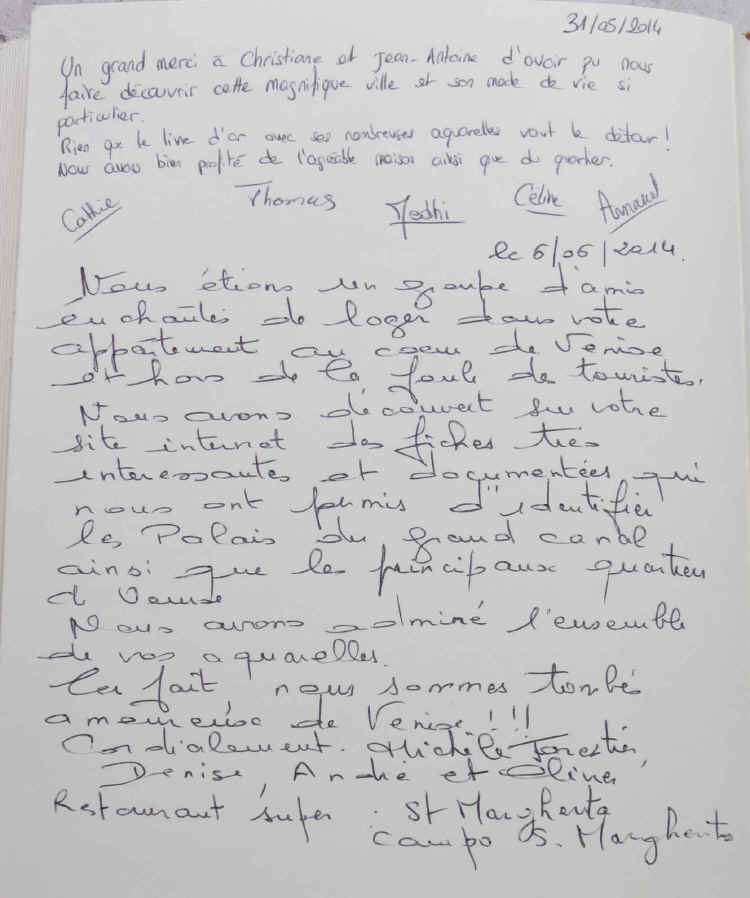 31/05/2014
Un grand merci à Christiane et Jean-Antoine d'avoir pu nous
faire découvrir cette magnifique ville et son mode de vie si
particulier.
Rien que le livre d'or avec ses nombreuses aquarelles vaut le détour!
Nous avons bien profité de l'agréable maison ainsi que du quartier.
Cathie Thomas Medhi Céline Arnaud
le 6/06/2014.
Nous étions un groupe d'amis
enchantés de loger dans votre
appartement au coeur de Venise
et hors de la foule de touristes.
Nous avons découvert sur votre
site internet des fiches très
interessantes et documentées qui
nous ont permis d'identifier
les Palais du grand canal
ainsi que les principaux quartiers
d Venise
Nous avons admiré l'ensemble
de vos aquarelles.
En fait, nous sommes tombés
amoureux de Venise!!!
Cordialement. Michèle Forestier,
Denise, André et Oliver
Restaurant super : St Margherita
campo S. Margherita